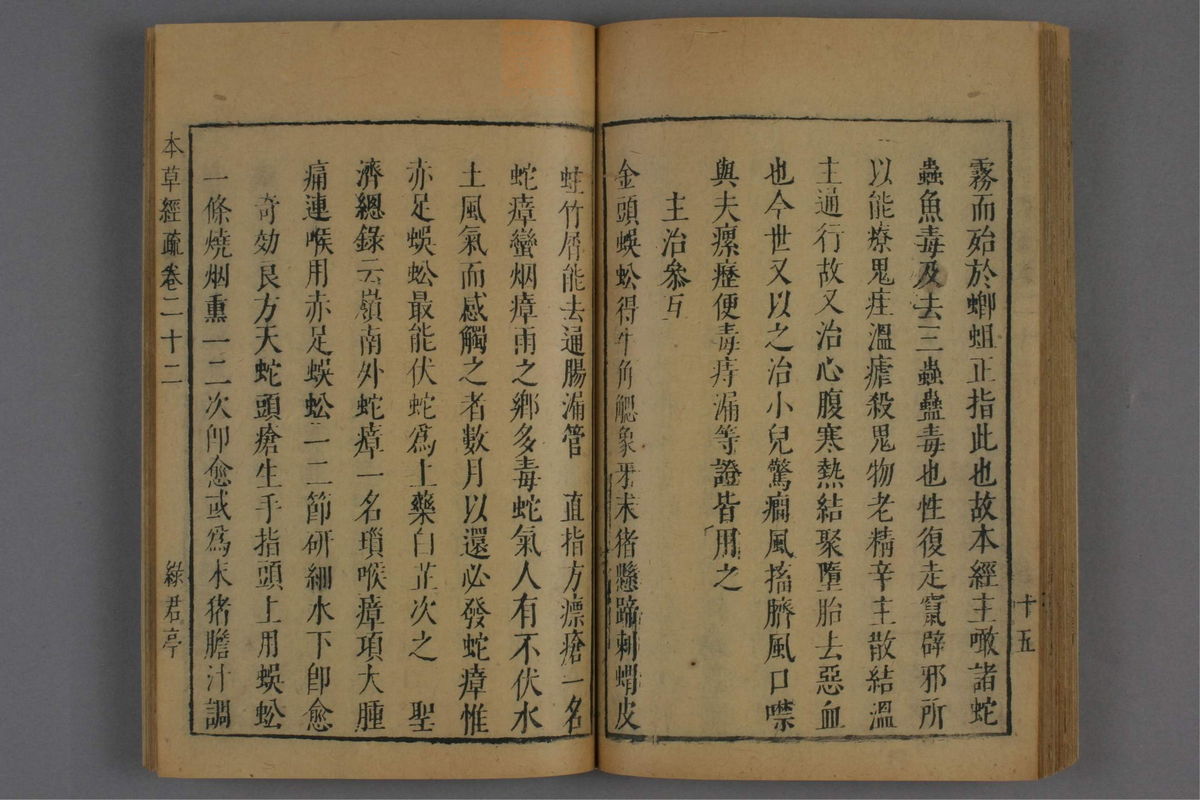 霧而殆於螂蛆正指此也故本經主噉諸蛇
蟲魚毒及去三蟲蠱毒也性復走竄辟邪所
以能療鬼疰溫瘧殺鬼物老精辛主散結溫
主通行故又治心腹寒熱結聚墮胎去惡血
也今世又以之治小兒驚癇風搐臍風口噤
與夫瘰癧便毒痔漏等證皆用之
主治參互
金頭蜈蚣得牛角䚡象牙末猪懸蹄刺蝟皮
十五
蛀竹屑能去通腸漏管 直指方瘭瘡一名
蛇瘴蠻烟瘴雨之鄉多毒蛇氣人有不伏水
土風氣而感觸之者數月以還必發蛇瘴惟
赤足蜈蚣最能伏蛇為上藥白芷次之 聖
濟總錄云嶺南外蛇瘴一名瑣喉瘴項大腫
痛連喉用赤足蜈蚣一二節研細水下卽愈
奇効良方天蛇頭瘡生手指頭上用蜈蚣
一條燒烟熏一二次卽愈或為末猪膽汁調
本草經疏卷二十二
綠君亭